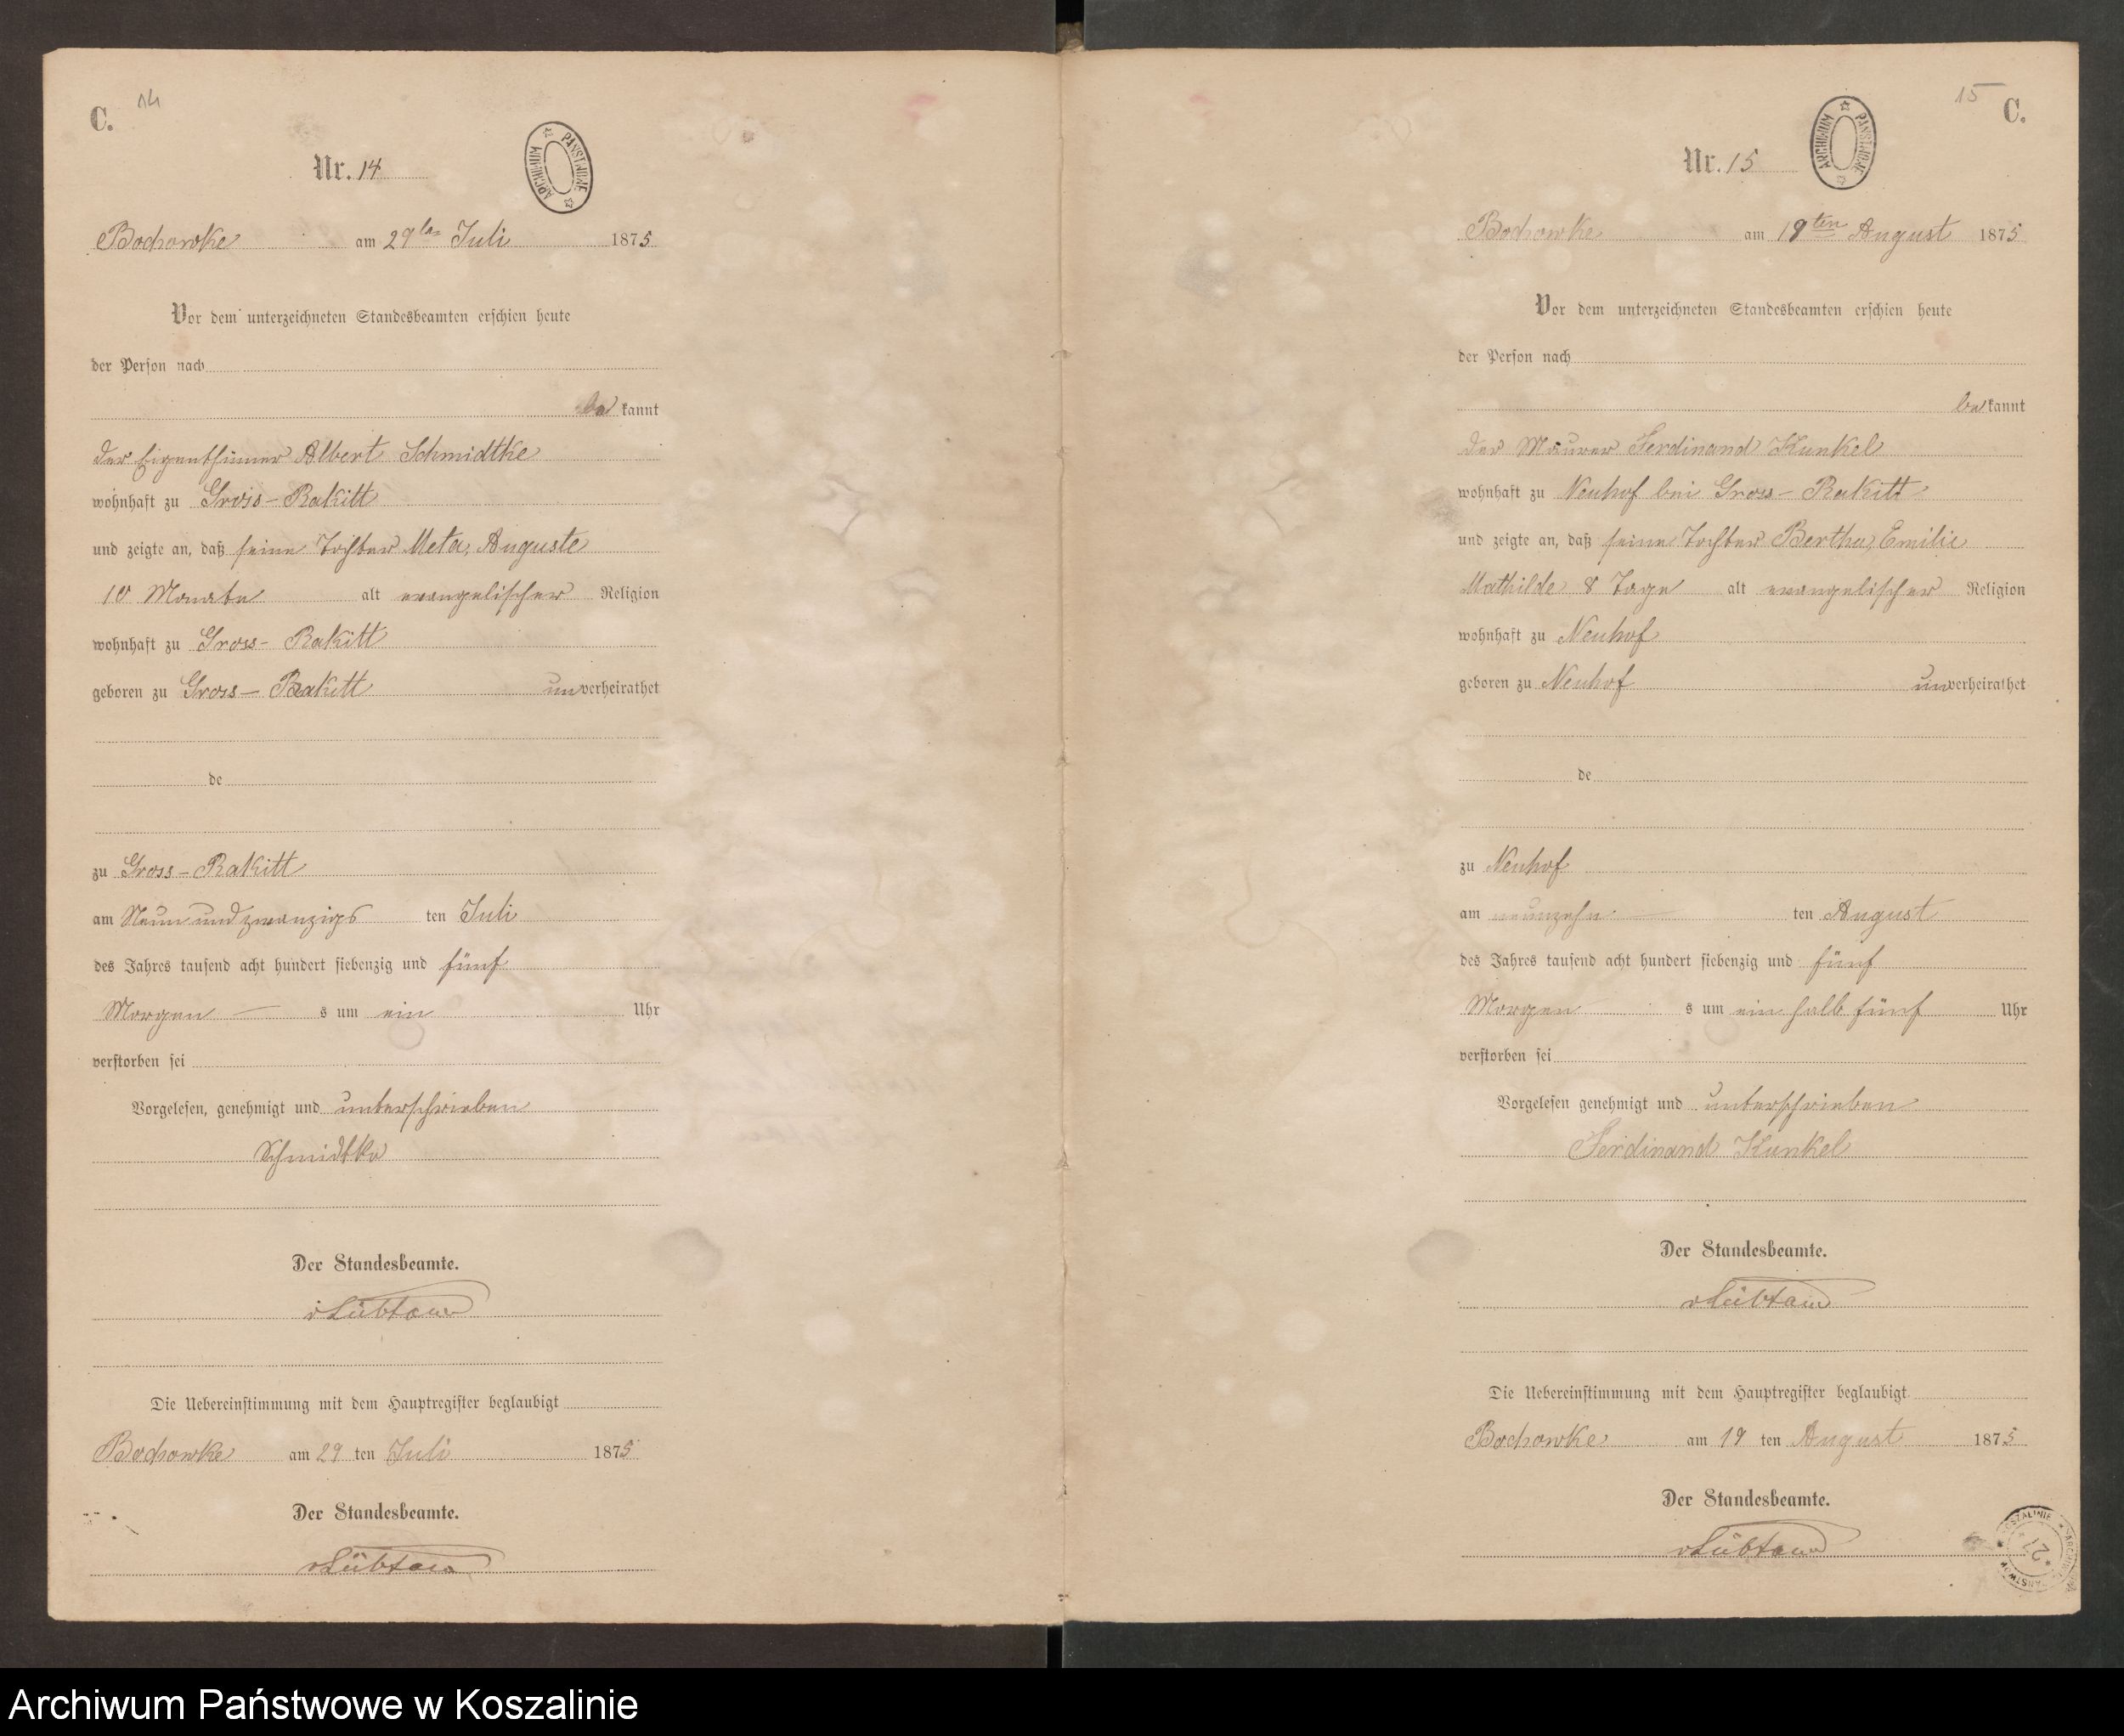 C. 14
Nr. 14
ARCHIWUM PAŃSTWOWE
Bochowke am 29ten Juli 1875
Vor dem unterzeichneten Standesbeamten erschien heute
der Person nach
bekannt
der Eigenthümer Albert Schmidtke
wohnhaft zu Gross-Rakitt
und zeigte an, daß seine Tochter Meta, Auguste
10 Monate alt evangelischer Religion
wohnhaft zu Gross-Rakitt
geboren zu Gross-Rakitt unverheirathet
de
zu Gross-Rakitt
am Neun und zwanzigs ten Juli
des Jahres tausend acht hundert siebenzig und fünf
Morgen — s um ein Uhr
verstorben sei
Vorgelesen, genehmigt und unterschrieben
Schmidtke
Der Standesbeamte.
vLübtow
Die Uebereinstimmung mit dem Hauptregister beglaubigt
Bochowke am 29 ten Juli 1875
Der Standesbeamte.
vLübtow
15 C.
Nr. 15
ARCHIWUM PAŃSTWOWE
Bochowke am 19ten August 1875
Vor dem unterzeichneten Standesbeamten erschien heute
der Person nach
bekannt
der Maurer Ferdinand Kunkel
wohnhaft zu Neuhof bei Gross-Rakitt
und zeigte an, daß seine Tochter Bertha, Emilie
Mathilde 8 Tage alt evangelischer Religion
wohnhaft zu Neuhof
geboren zu Neuhof unverheirathet
de
zu Neuhof
am neunzehn — ten August
des Jahres tausend acht hundert siebenzig und fünf
Morgen s um ein halb fünf Uhr
verstorben sei
Vorgelesen genehmigt und unterschrieben
Ferdinand Kunkel
Der Standesbeamte.
vLübtow
Die Uebereinstimmung mit dem Hauptregister beglaubigt
Bochowke am 19 ten August 1875
Der Standesbeamte.
vLübtow
Archiwum Państwowe w Koszalinie